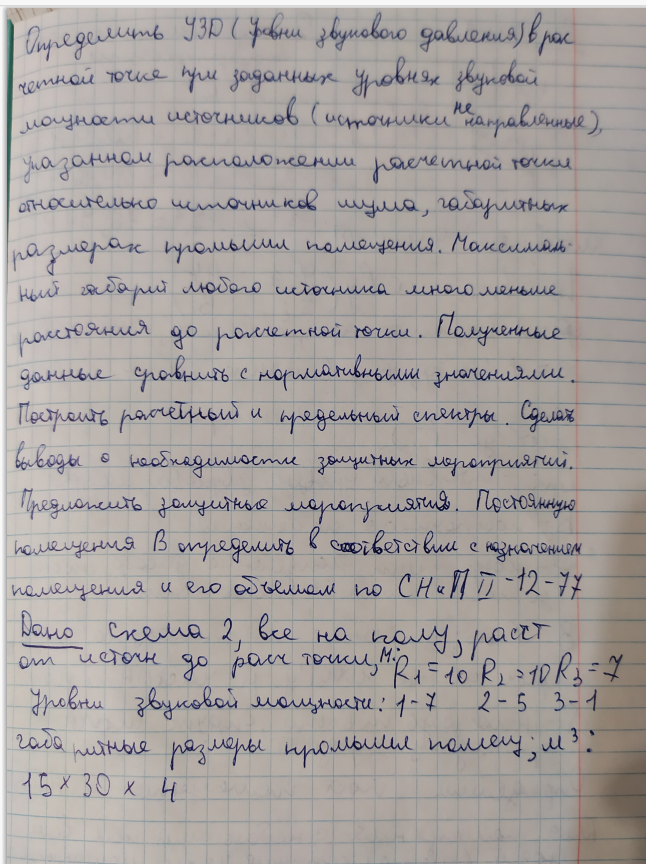 Определить УЗД (Уровни звукового давления) в рас
четной точке при заданных уровнях звуковой
мощности источников (источники не направленные),
указанном расположении расчетной точки
относительно источников шума, габаритных
размерах промышл помещения. Максималь-
ный габарит любого источника много меньше
расстояния до расчетной точки. Полученные
данные сравнить с нормативными значениями.
Построить расчетный и предельный спектры. Сделать
выводы о необходимости защитных мероприятий.
Предложить защитные мероприятия. Постоянную
помещения В определить в соответствии с назначением
помещения и его объемом по СНиП II-12-77
Дано схема 2, все на полу, расст
от источн до расч точки, м: R₁=10 R₂=10 R₃=7
Уровни звуковой мощности: 1-7 2-5 3-1
габаритные размеры промышл помещ; м³:
15 × 30 × 4